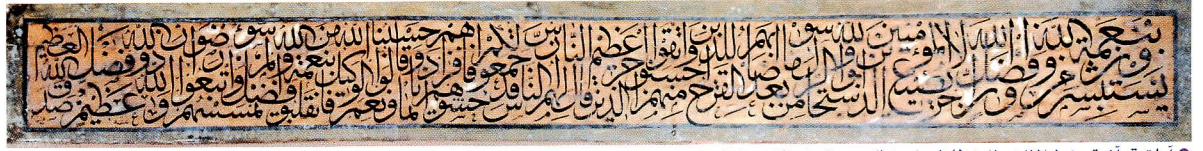 يستبشرون بنعمة من الله وفضل وأن الله لا يضيع أجر المؤمنين الذين استجابوا لله والرسول من بعد ما أصابهم القرح للذين أحسنوا منهم واتقوا أجر عظيم الذين قال لهم الناس إن الناس قد جمعوا لكم فاخشوهم فزادهم إيمانا وقالوا حسبنا الله ونعم الوكيل فانقلبوا بنعمة من الله وفضل لم يمسسهم سوء واتبعوا رضوان الله والله ذو فضل عظيم صدق الله العظيم